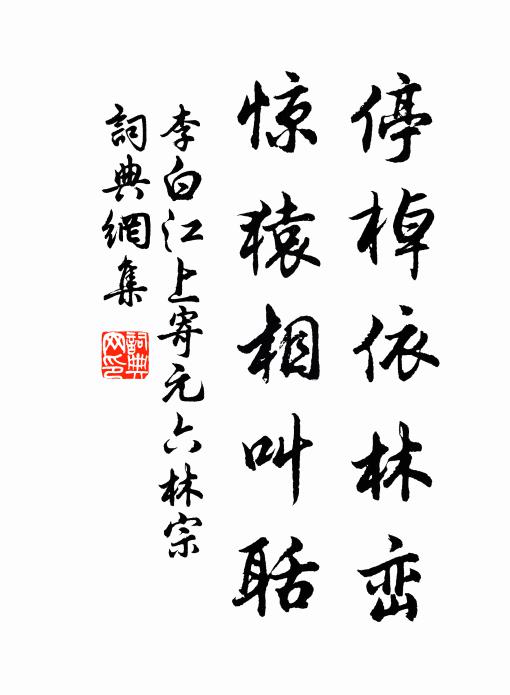 停棹依林峦
惊猿相叫聒
李白江上寄元六林宗
詞典網集
詞典
网印